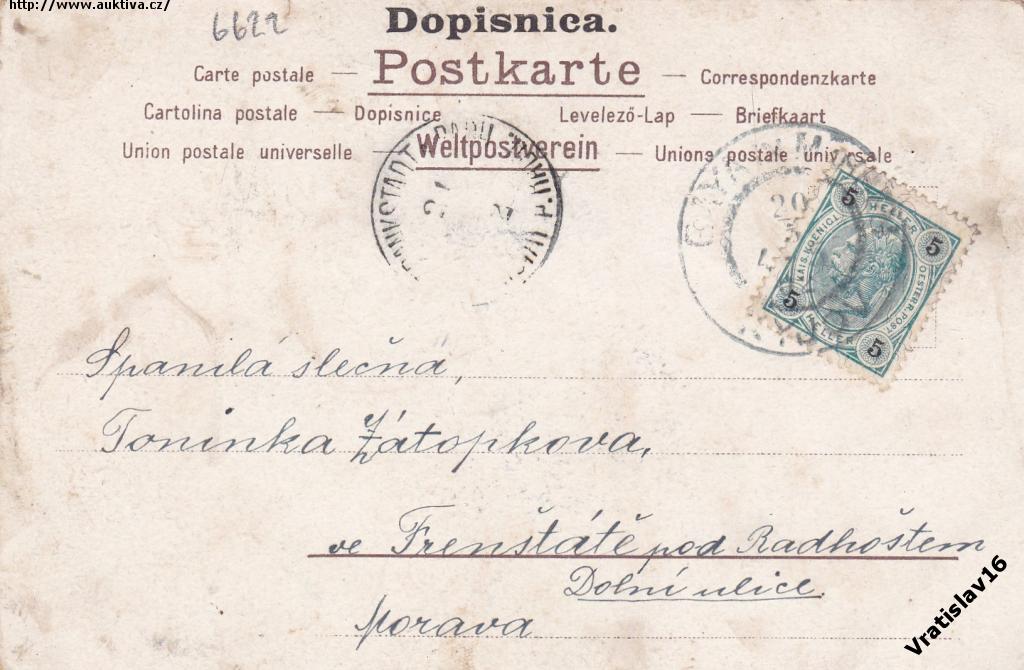 http://www.auktiva.cz/
6622
Dopisnica.
Carte postale — Postkarte — Correspondenzkarte
Cartolina postale — Dopisnice Levelező-Lap — Briefkaart
Union postale universelle — Weltpostverein — Unione postale universale
5 HELLER 5
KAIS. KOENIGL. OESTERR. POST.
5 HELLER 5
Spanilá slečna,
Toninka Zátopkova,
ve Frenštátě pod Radhoštem
Dolní ulice.
Morava
Vratislav16